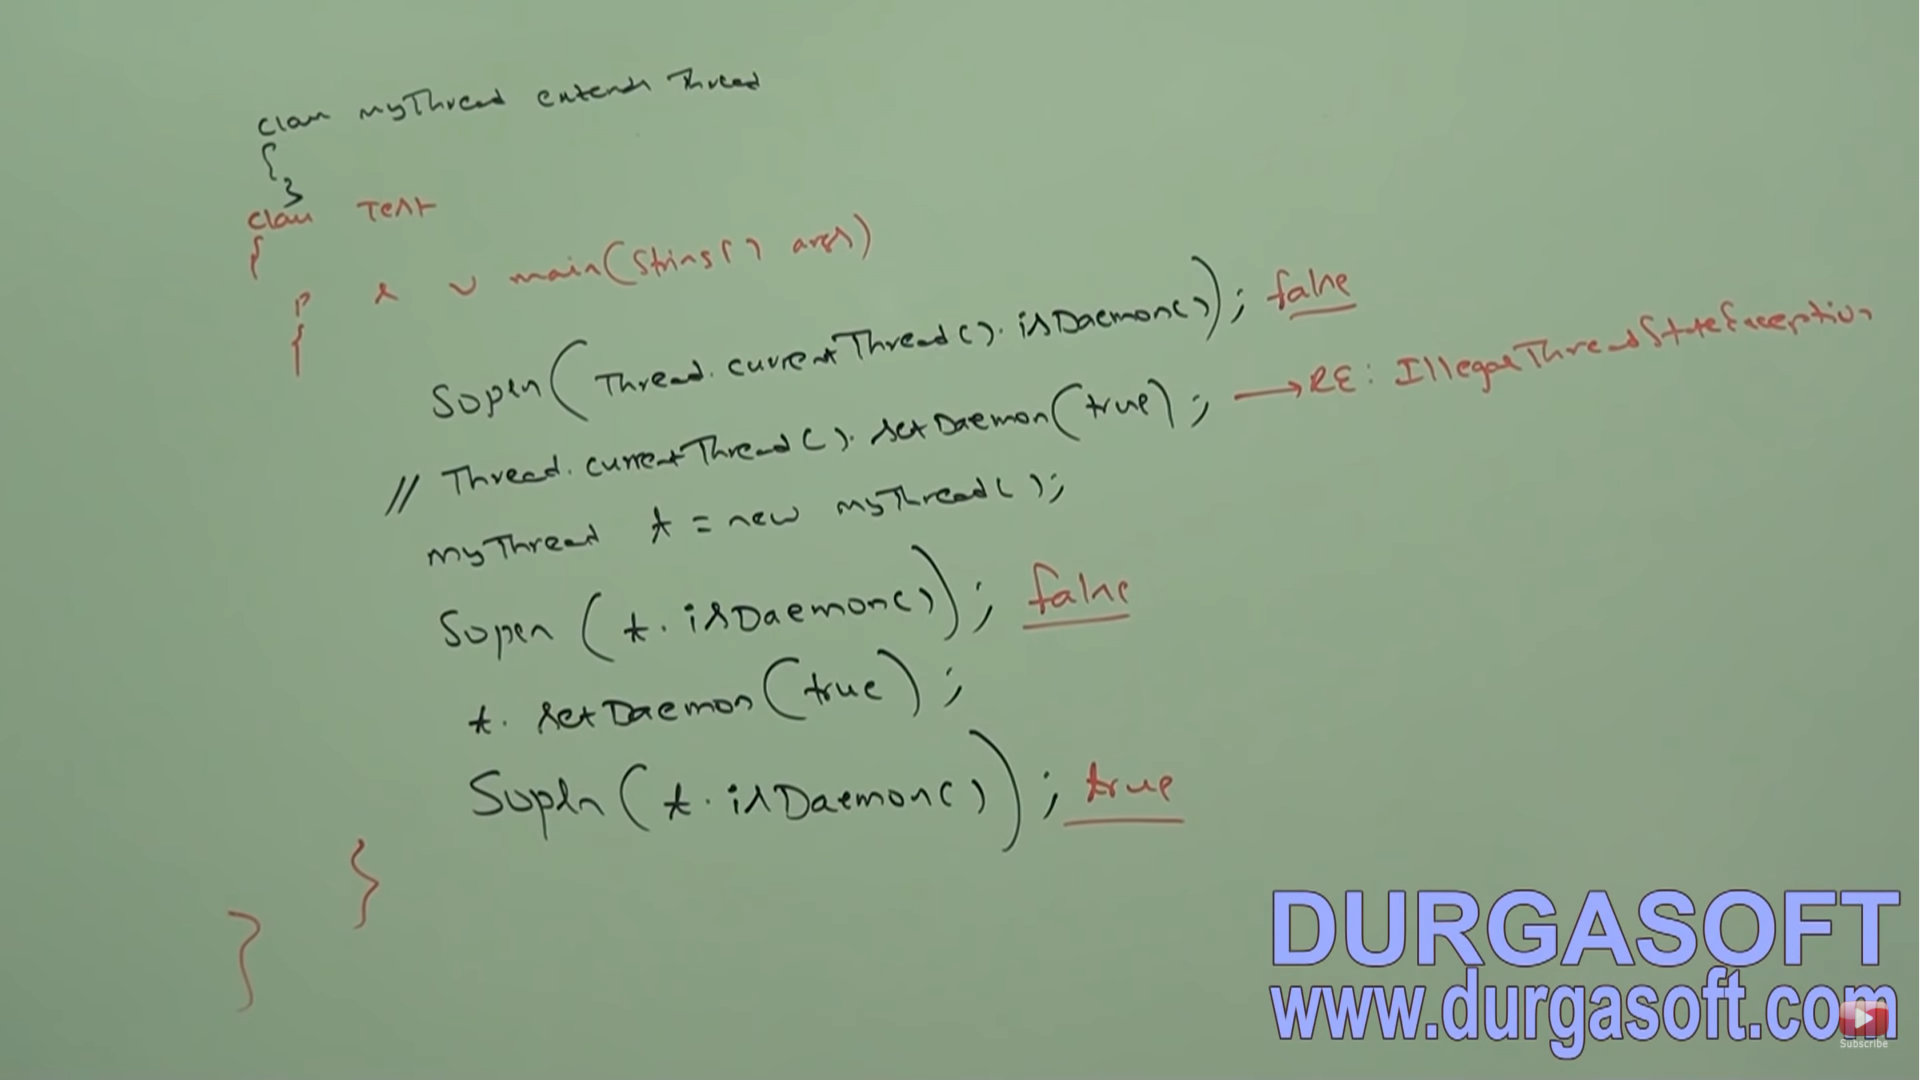 class myThread extends Thread
{
}
class Test
{
p s v main(String[] args)
{
Sopln(Thread.currentThread().isDaemon()); false
// Thread.currentThread().setDaemon(true); → RE: IllegalThreadStateException
myThread t = new myThread();
Sopln(t.isDaemon()); false
t.setDaemon(true);
Sopln(t.isDaemon()); true
}
}
DURGASOFT
www.durgasoft.com
Subscribe